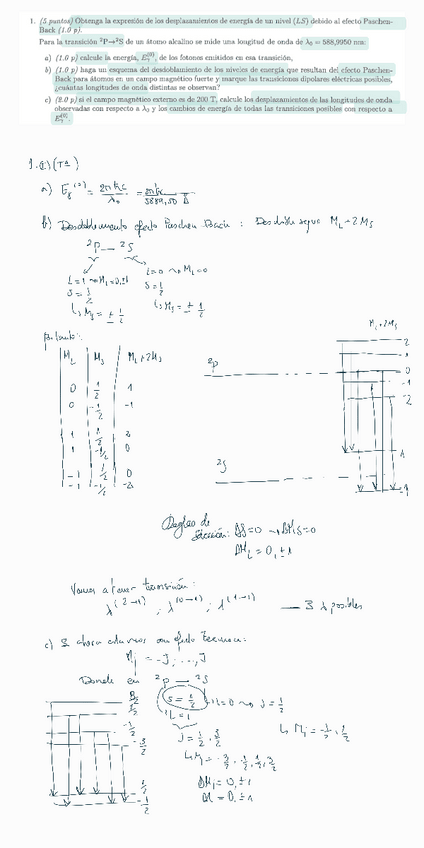 1. (5 puntos) Obtenga la expresión de los desplazamientos de energía de un nivel (LS) debido al efecto Paschen-
Back (1.0 p).
Para la transición ²P→²S de un átomo alcalino se mide una longitud de onda de λ₀ = 588,9950 nm:
a) (1.0 p) calcule la energía, E_γ^(0), de los fotones emitidos en esa transición,
b) (1.0 p) haga un esquema del desdoblamiento de los niveles de energía que resultan del efecto Paschen-
Back para átomos en un campo magnético fuerte y marque las transiciones dipolares eléctricas posibles,
¿cuántas longitudes de onda distintas se observan?
c) (2.0 p) si el campo magnético externo es de 200 T, calcule los desplazamientos de las longitudes de onda
observadas con respecto a λ₀ y los cambios de energía de todas las transiciones posibles con respecto a
E_γ^(0).
a) E_γ^(0) = 2πħc/λ₀ =
b) Desdoblamiento efecto Paschen Back : Desdobla según M_L+2M_S
²P — ²S
L=1 → M_L=0,±1
L=0 → M_L=0
S=1/2
S=1/2
↳ M_S = ± 1/2
↳ M_S = ± 1/2
M_L+2M_S
M_L M_S M_L+2M_S
2
1
²P 0
0 1/2 1
-1
0 -1/2 -1
-2
1 1/2 2
1 -1/2 0
²S 1
-1 1/2 0
-1 -1/2 -2
-1
Reglas de
selección: ΔS=0 → ΔM_S=0
ΔM_L = 0, ±1
Vamos a tener transición:
λ^(2→1) ; λ^(0→1) ; λ^(1→1) — 3 λ posibles
c) Si ahora estamos con efecto Zeeman:
M_j = -J, ..., J
Donde en ²P — ²S
S = 1/2 L=0 → J=1/2
L=1
↳ M_j = -1/2, 1/2
J = 1/2, 3/2
↳ M_j = -3/2, -1/2, 1/2, 3/2
3/2
1/2
-1/2
-3/2
1/2
-1/2
ΔM_j = 0, ±1
= 0, ±1